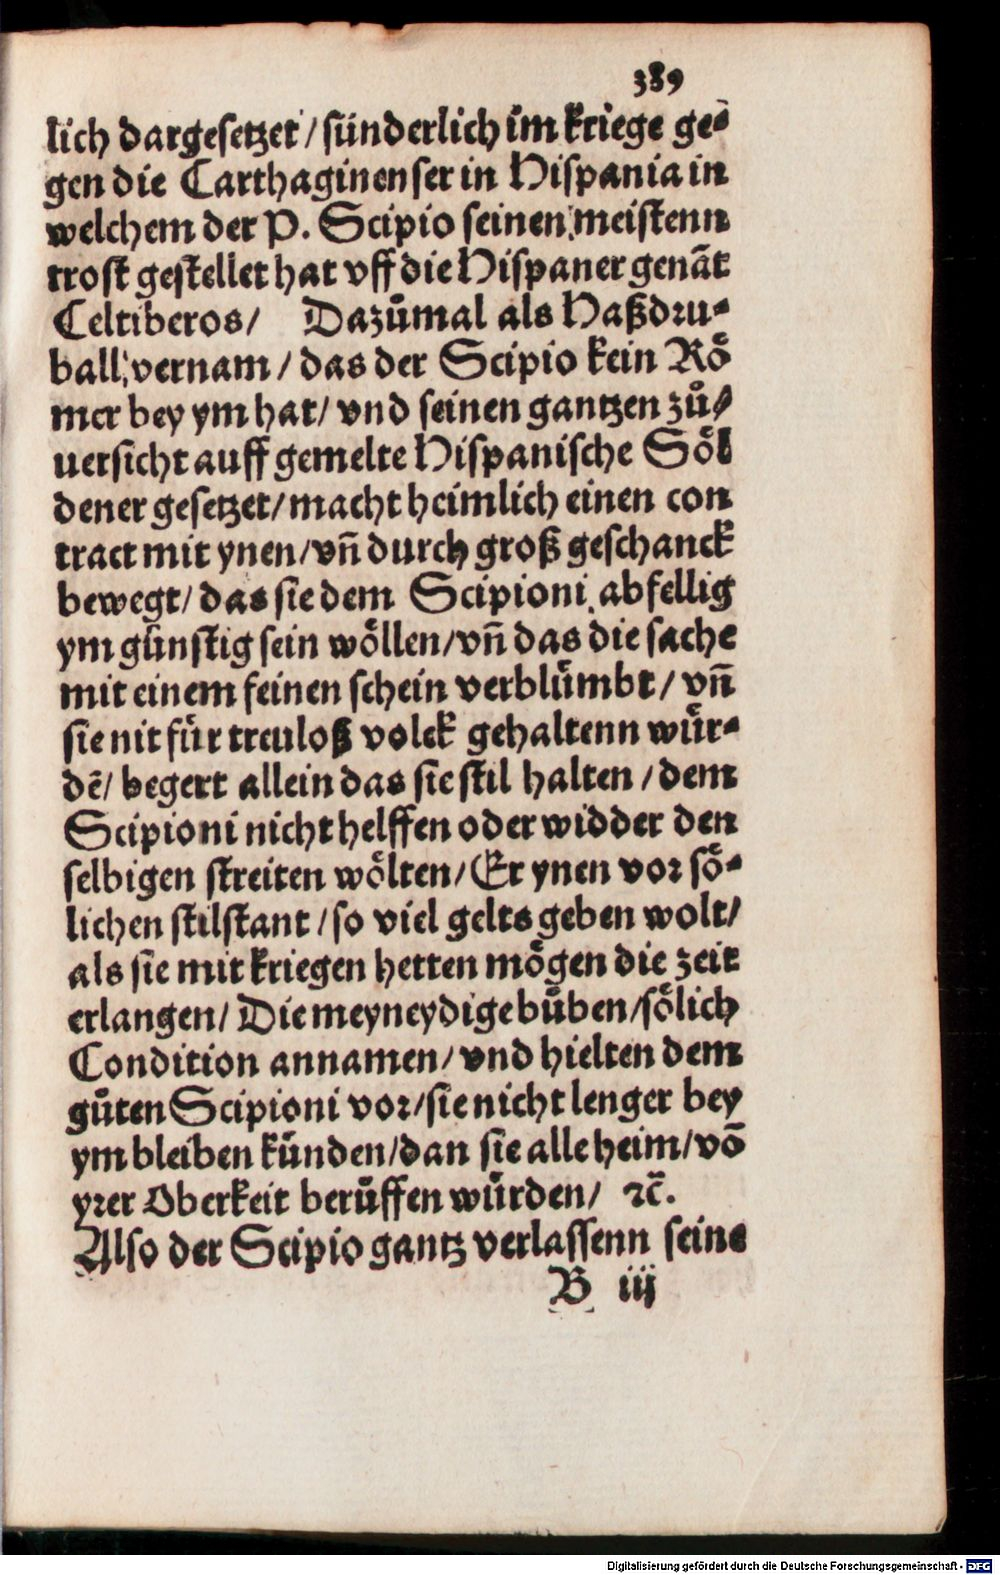 389
lich dargesetzet / sünderlich im kriege ge⸗
gen die Carthaginenser in Hispania in
welchem der P. Scipio seinen meistenn
trost gestellet hat vff die Hispaner genāt
Celtiberos / Dazůmal als Haßdru⸗
ball vernam / das der Scipio kein Rö
mer bey ym hat / vnd seinen gantzen zů⸗
uersicht auff gemelte Hispanische Söl
dener gesetzet / macht heimlich einen con
tract mit ynen / vn̄ durch groß geschanck
bewegt / das sie dem Scipioni abfellig
ym günstig sein wöllen / vn̄ das die sache
mit einem feinen schein verblümbt / vn̄
sie nit für treuloß volck gehaltenn wür⸗
dē / begert allein das sie stil halten / dem
Scipioni nicht helffen oder widder den
selbigen streiten wölten / Er ynen vor sö⸗
lichen stilstant / so viel gelts geben wolt /
als sie mit kriegen hetten mögen die zeit
erlangen / Die meyneydige bůben / sölich
Condition annamen / vnd hielten dem
gůten Scipioni vor / sie nicht lenger bey
ym bleiben künden / dan sie alle heim / vō
yrer Oberkeit berůffen würden / ꝛc̄.
Also der Scipio gantz verlassenn seine
B iij
Digitalisierung gefördert durch die Deutsche Forschungsgemeinschaft - DFG